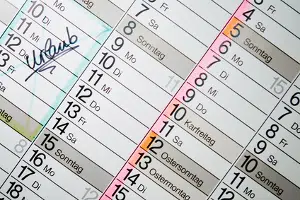 10 Di
11 Mi
12 Do
13 Fr
Urlaub
7 Sa
8 Sonntag
9 Mo
10 Di
11 Mi
12 Do
13 Fr
14 Sa
15 Sonntag
16 Mo
17 Di
18
4 Sa
5 Sonntag
6 Mo
7 Di
8 Mi
9 Do
10 Karfreitag
11 Sa
12 Ostersonntag
13 Ostermontag
14 Di
15 Mi
7 Do
8 Fr
9 Sa
10 Sonntag
11 Mo
12 Di
13 Mi